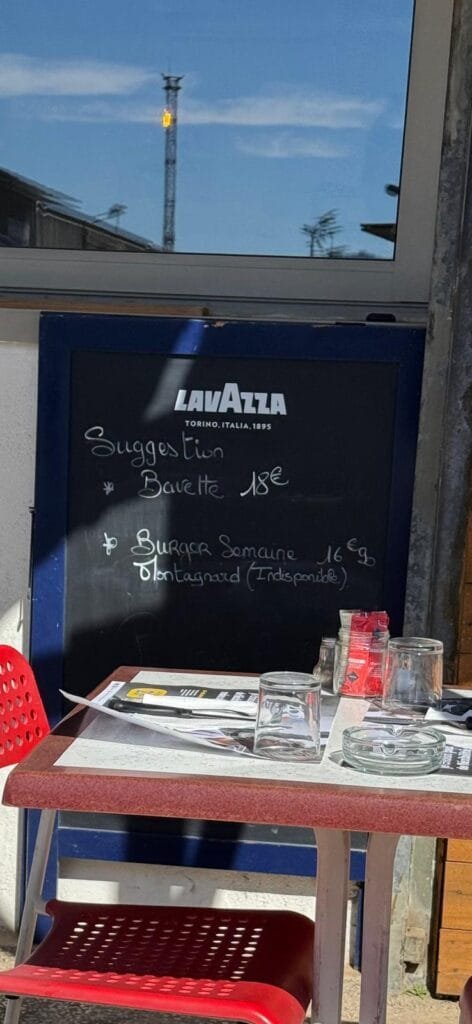 LAVAZZA
TORINO, ITALIA, 1895
Suggestion
* Bavette 18€
* Burger Semaine 16€90
Montagnard (Indisponible)